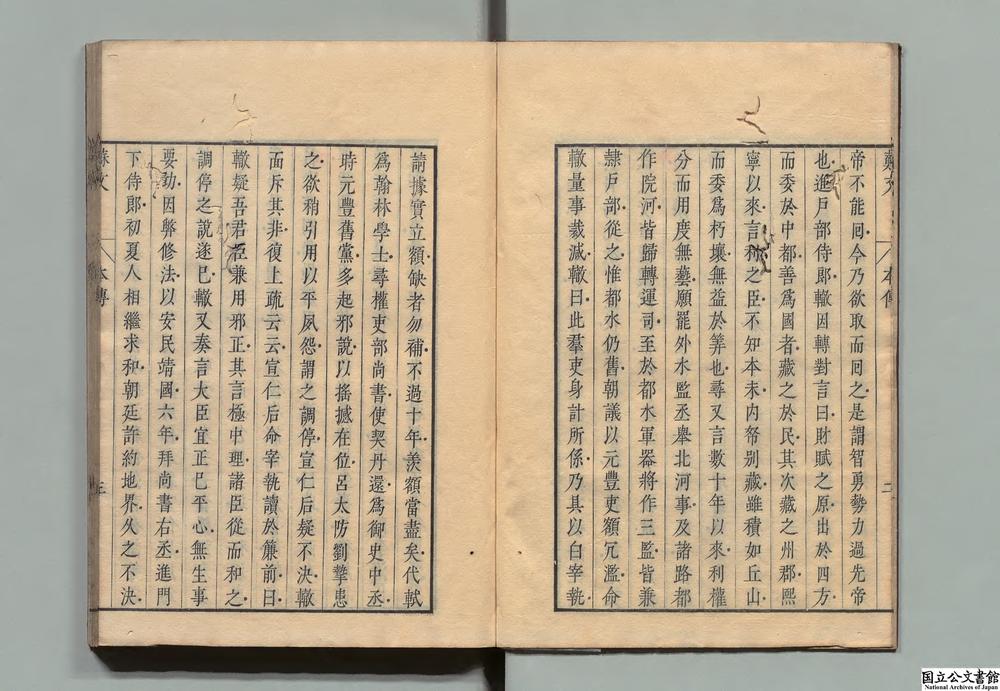 帝不能回今乃欲取而回之是謂智勇勢力過先帝
也進戸部侍郎轍因轉對言曰財賦之原出於四方
而委於中都善爲國者藏之於民其次藏之州郡熙
寧以來言利之臣不知本末内帑别藏雖積如丘山
而委爲朽壤無益於筭也尋又言數十年以來利權
分而用度無藝願罷外水監丞舉北河事及諸路都
作院河皆歸轉運司至於都水軍器將作三監皆兼
隸戸部從之惟都水仍舊朝議以元豐吏額冗濫命
轍量事裁減轍曰此羣吏身計所係乃具以白宰執
請據實立額缺者勿補不過十年羨額當盡矣代軾
爲翰林學士尋權吏部尚書使契丹還爲御史中丞
時元豐舊黨多起邪說以搖撼在位呂太防劉摯患
之欲稍引用以平夙怨謂之調停宣仁后疑不決轍
面斥其非復上疏云云宣仁后命宰執讀於簾前曰
轍疑吾君臣兼用邪正其言極中理諸臣從而和之
調停之說遂已轍又奏言大臣宜正已平心無生事
要劲因弊修法以安民靖國六年拜尚書右丞進門
下侍郎初夏人相繼求和朝廷許約地界久之不決
本傳
三
本傳
二
国立公文書館
National Archives of Japan